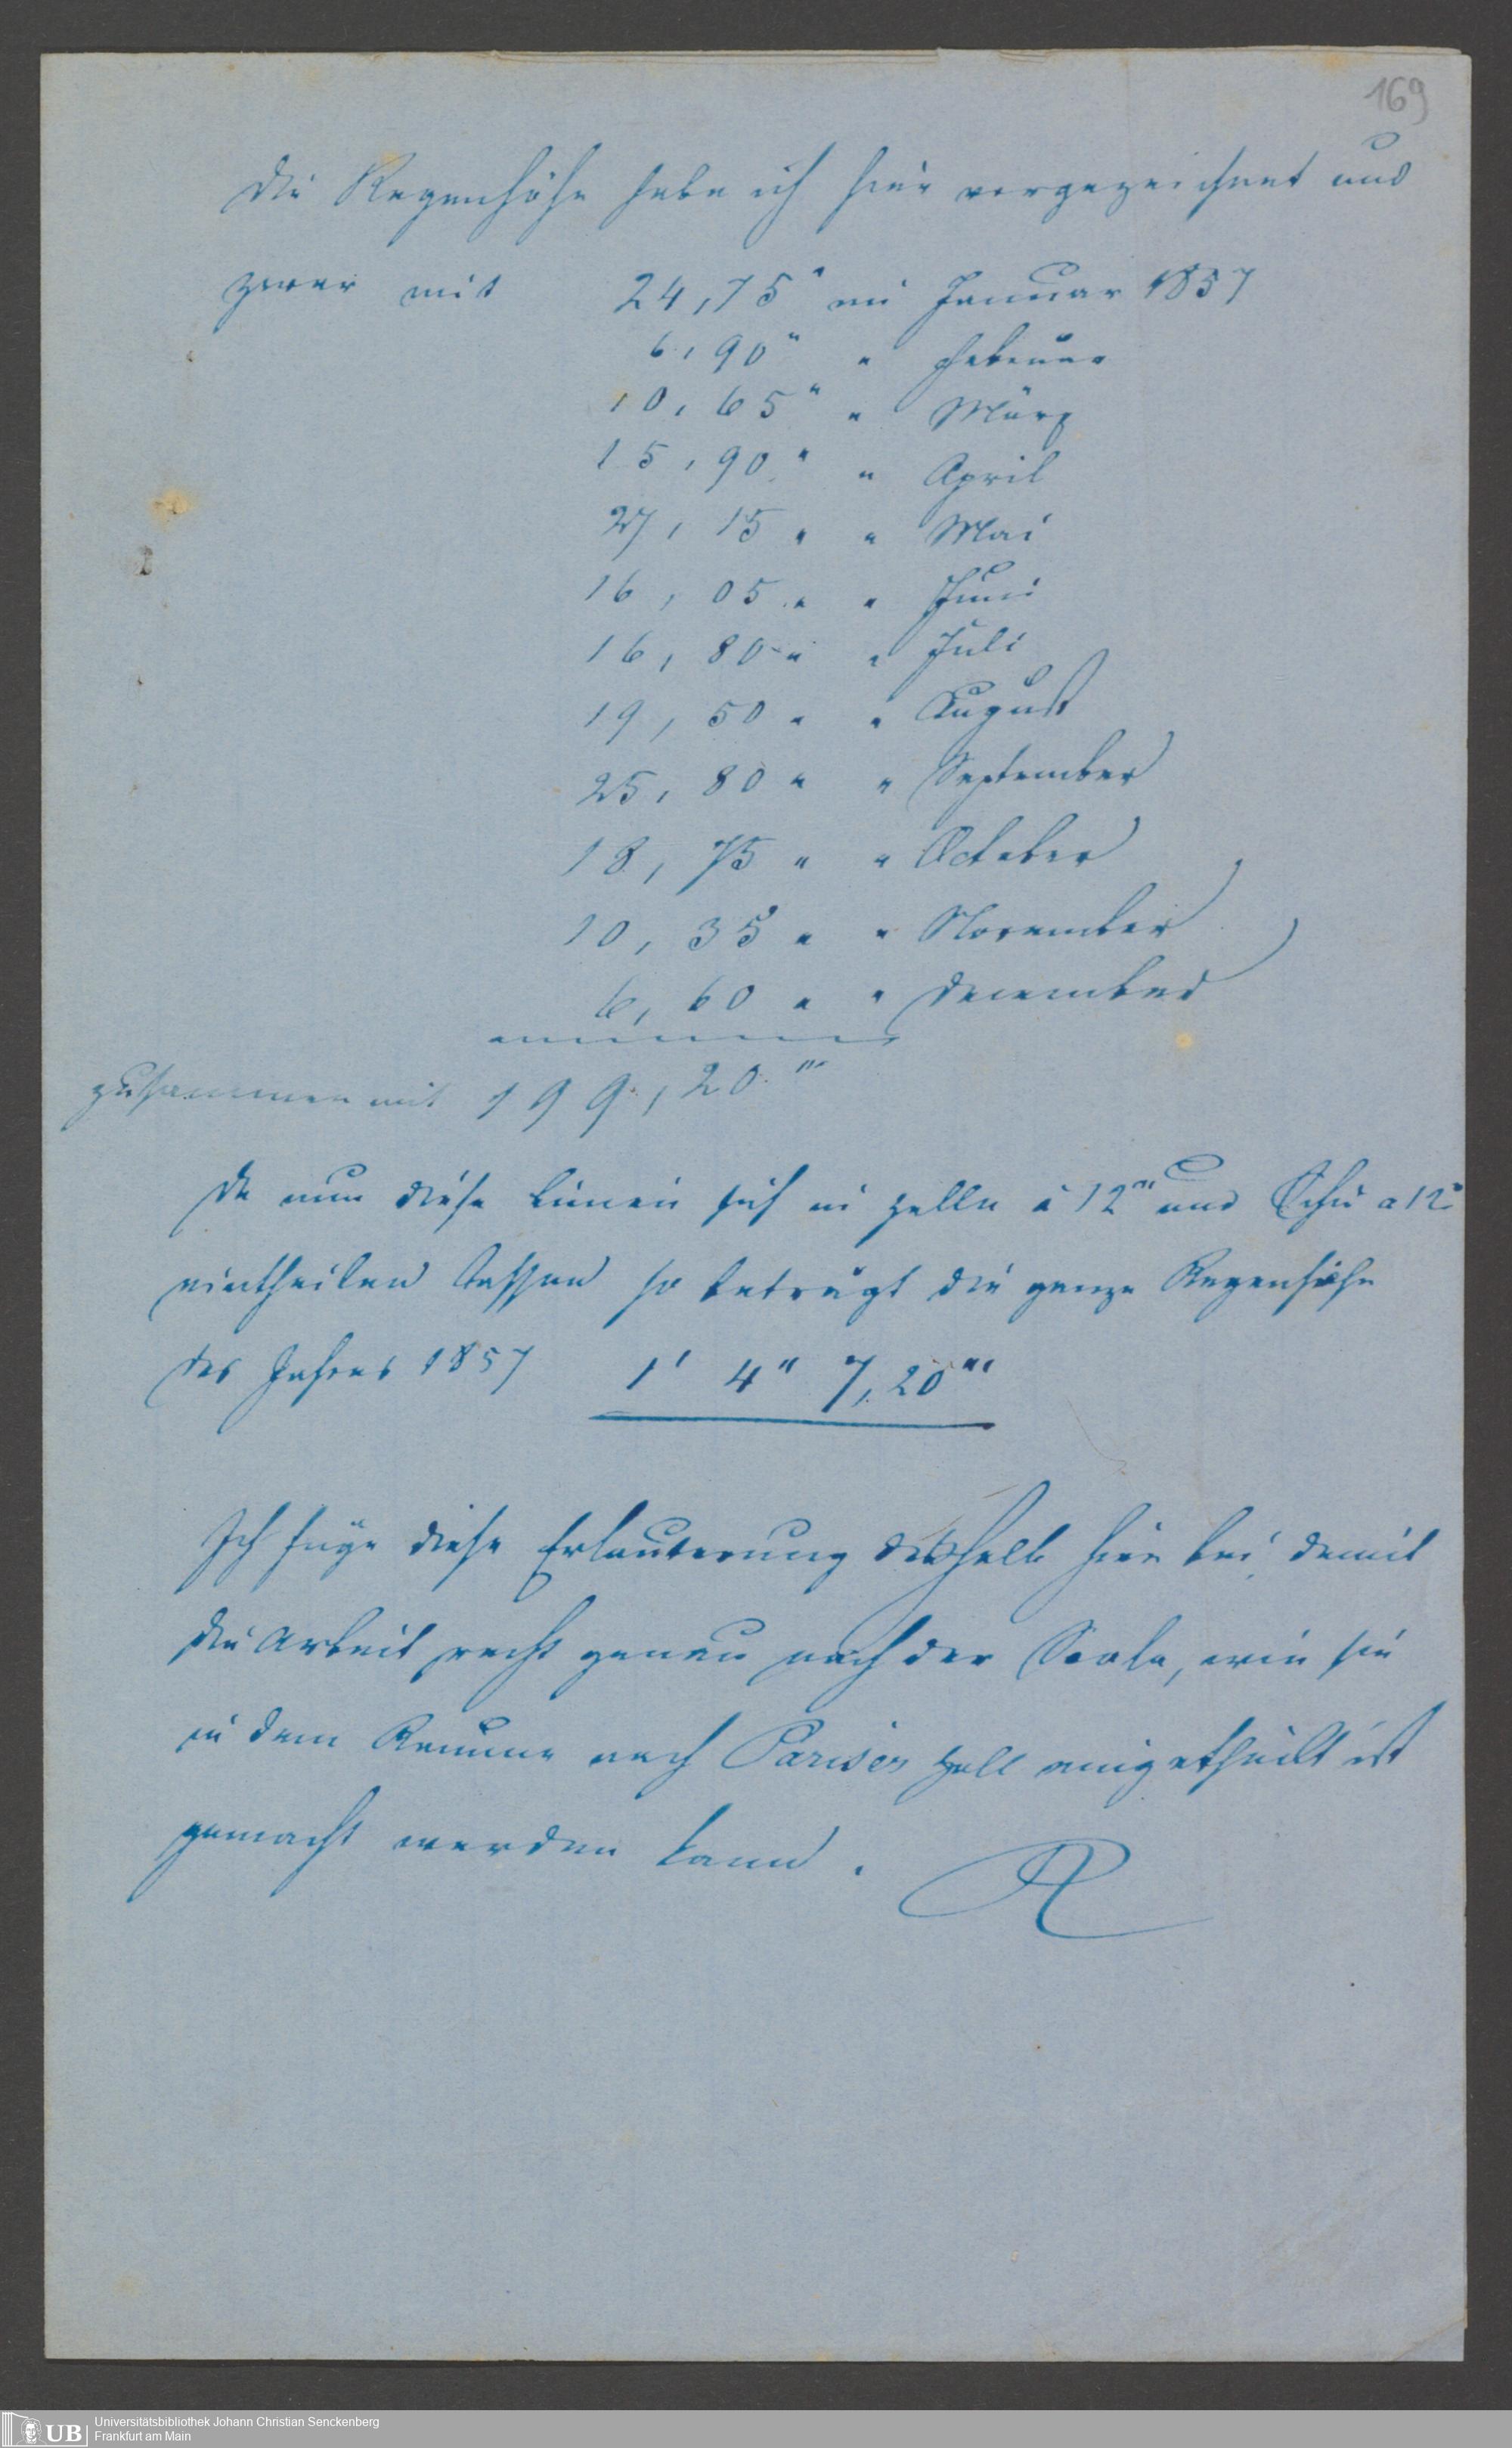 169
Die Regenhöhe habe ich hier vorgezeichnet und
zwar mit 24,75" im Januar 1857
6,90" " Februar
10,65" " März
15,90" " April
27,15 " " Mai
16,05 " " Juni
16,80 " " Juli
19,50 " " August
25,80 " " September
18,75 " " October
10,35 " " November
6,60 " " December
zusammen mit 199,20'''
Da nun diese Linien sich in Zolle à 12''' und Schu a 12"
eintheilen lassen so beträgt die ganze Regenhöhe
des Jahres 1857 1' 4" 7,20'''
Ich füge diese Erlauterung deßhalb hier bei, damit
die Arbeit recht genau nach der Scala, wie sie
in dem Raume nach Pariser Zoll eingetheilt ist
gemacht werden kann.
Universitätsbibliothek Johann Christian Senckenberg
Frankfurt am Main
UB